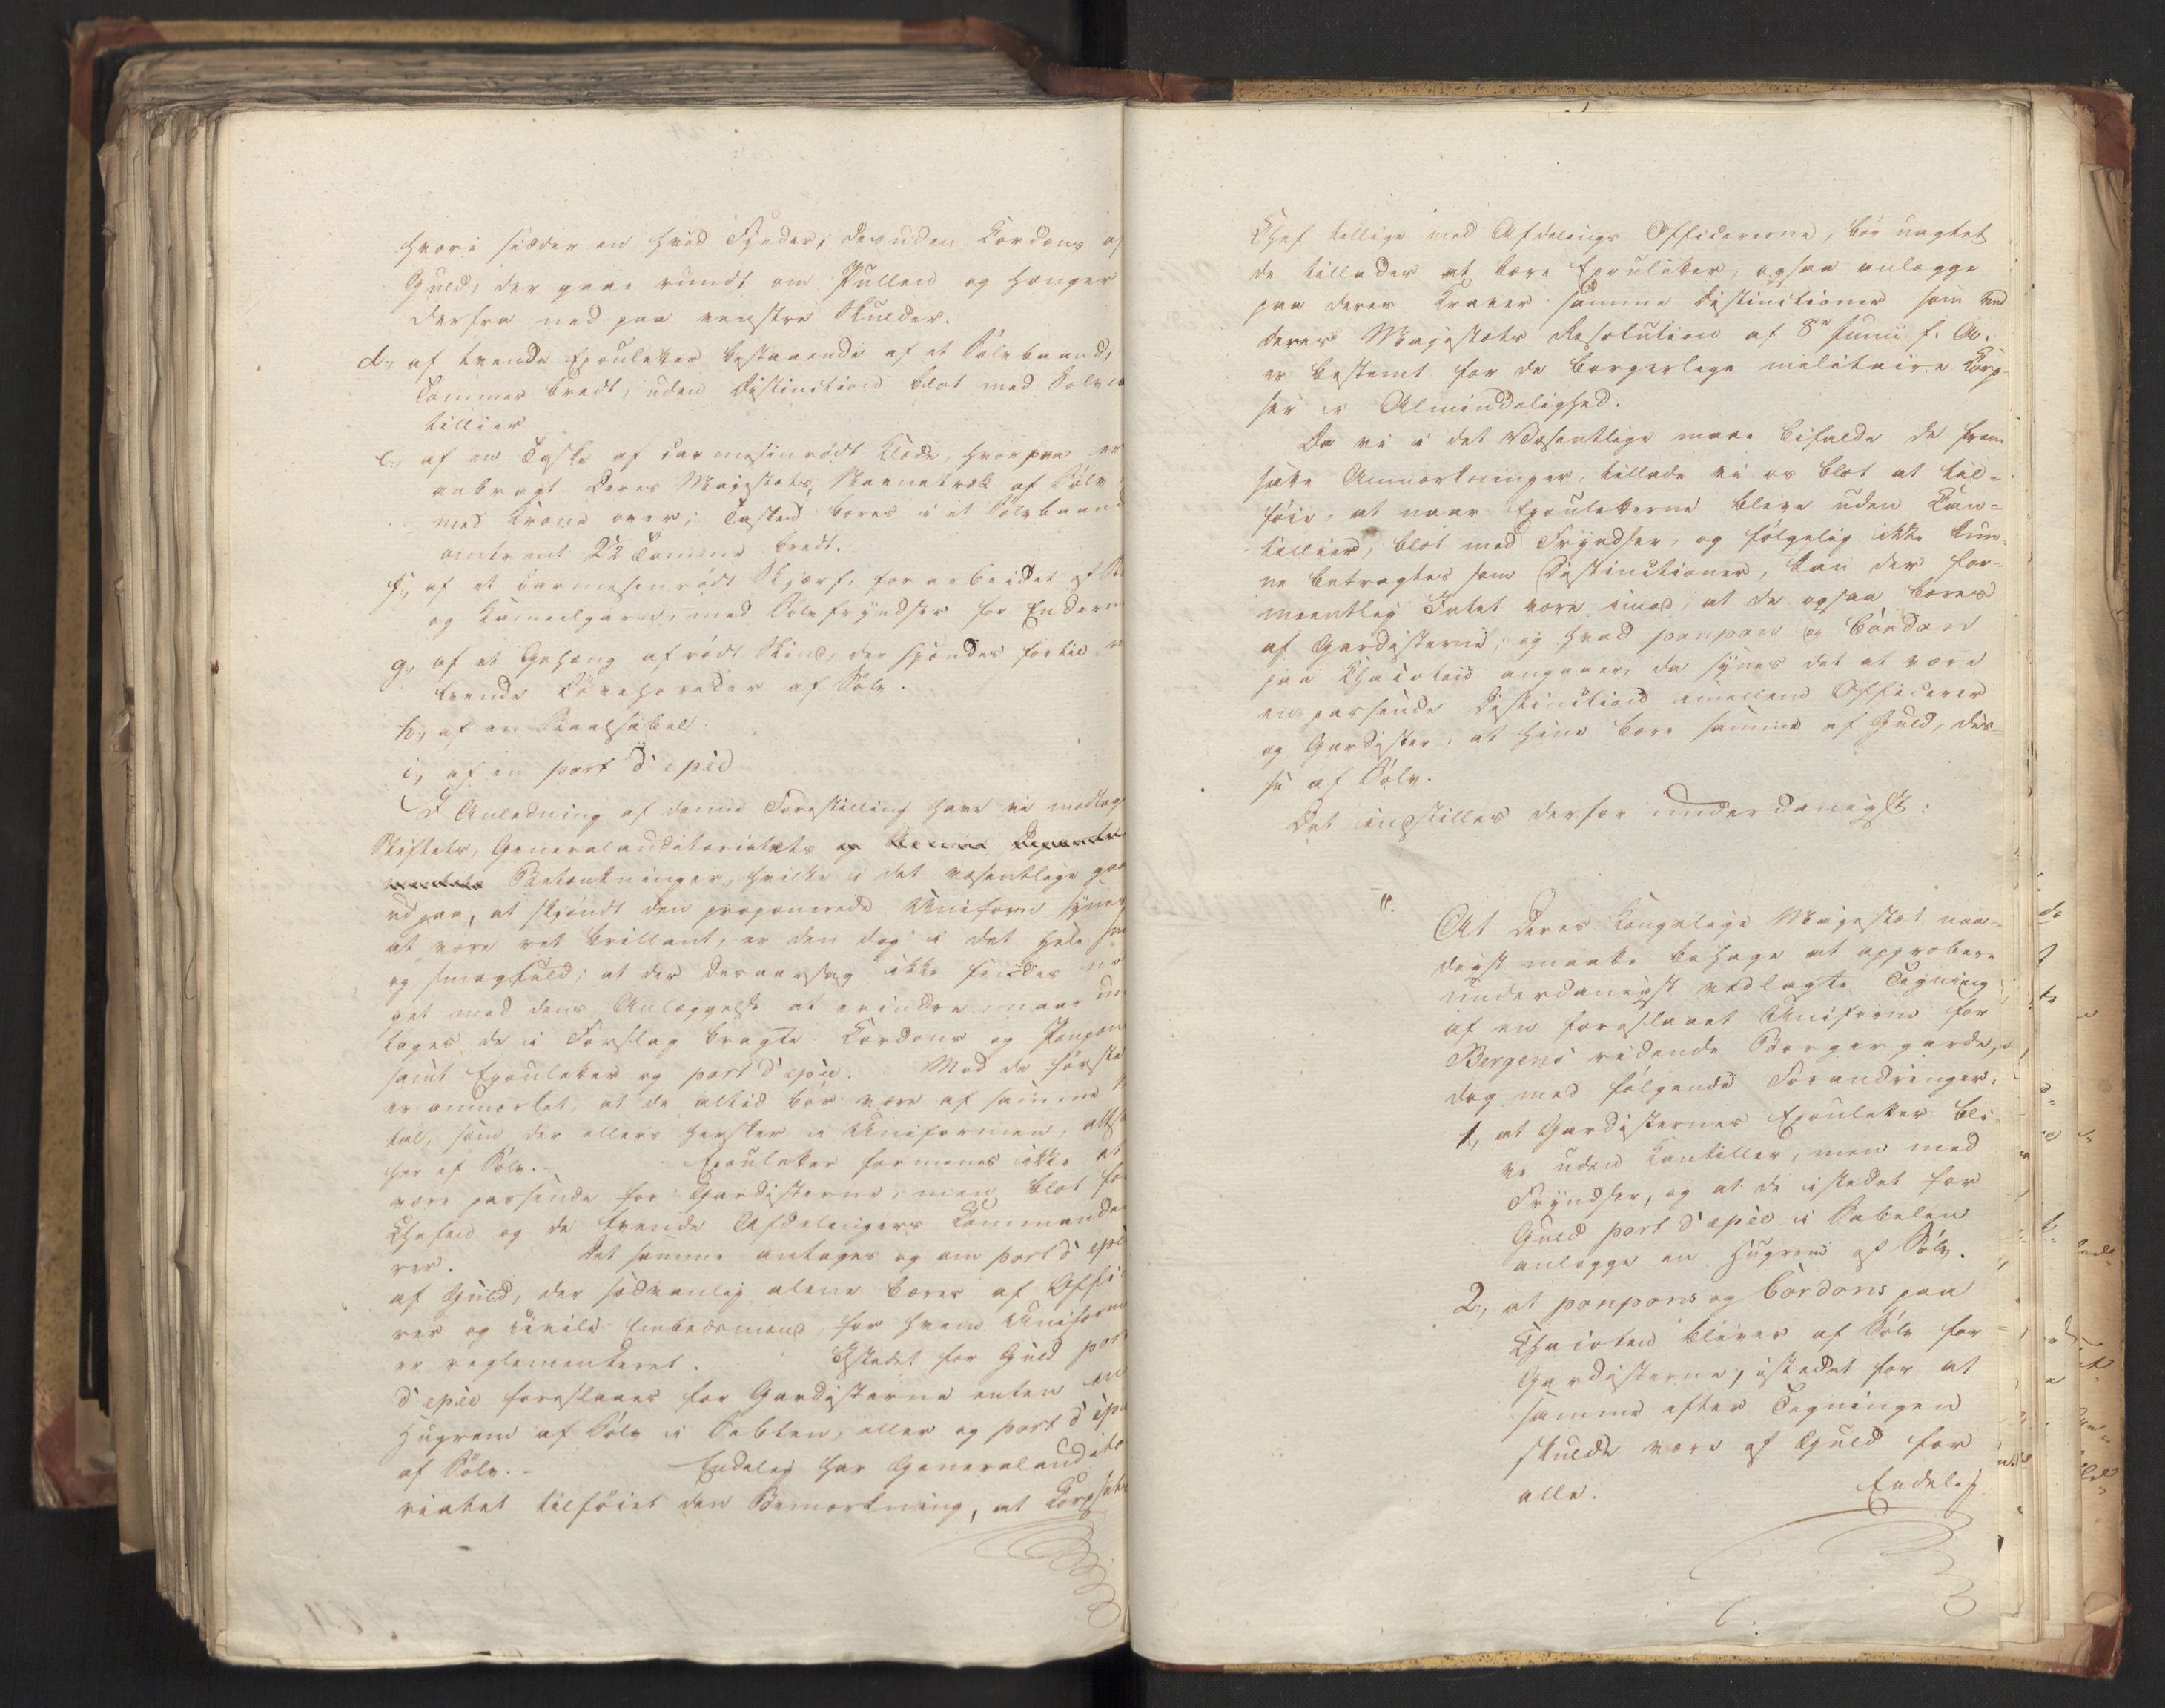 hvori sidder en hvid Fjeder; desuden Kordons af
Guld, der gaae rundt om Pullen og hænger
derfra ned paa venstre Skulder.
d., af tvende Epouletter bestaaende af et Sølvbaand,
Tommer bredt, uden Distinction blot med Sølv
tillier
e., af en Taske af carmesinrødt Klæde, hvorpaa er
anbragt Deres Majestæts Navnetræk af Sølv
med Krone over; Tasken bæres i et Sølvbaand
omtrent 2½ Tomme bredt.
f., af et carmesinrødt Skjærf, forarbeidet af
og Kameelgarn, med Sølvfryndser for Enderne
g, af et Gehæng af rødt Skind, der spændes fortil
tvende Løvehoveder af Sølv.
h., af en Staalsabel.
i., af en port d'epée
I Anledning af denne Forestilling have vi modtag
Stiftets, Generalauditoriatets og
Betænkninger, hvilke i det væsentlige gaae
ud paa, at skjøndt den proponerede Uniform synes
at være ret brillant, er den dog i det hele
og smagfuld; at der desaarsag ikke findes no
get mod dens Anlæggelse at erindre, naar und
tages de i Forslag bragte Kordons og Ponpons
samt Epouletter og port d'epée. Mod de første
er anmærket, at de altid bør være af samme
tal, som der ellers hersker i Uniformen, altsaa
her af Sølv. Epouletter formenes ikke at
være passende for Gardisterne, men blot for
Chefen og de tvende Afdelingers Commandeu
rer. Det samme antages og om port d'epée
af Guld, der sædvanlig alene bæres af Offici
rer og civile Embedsmænd, for hvem Uniform
er reglementeret. Istedet for Guld port
d'epée foreslaaes for Gardisterne enten en
Hugrem af Sølv i Sablen, eller og port d'epée
af Sølv. Endelig har Generalaudito
riatet tilføiet den Bemærkning, at Korpsets
Chef tillige med Afdelings Officererne, bør uagtet
de tillades at bære Epouletter, ogsaa anlægge
paa deres Kraver samme Distinctioner som ved
Deres Majestæts Resolution af 8de Junii f. A.
er bestemt for de borgerlige militaire Korp-
ser i Almindelighed.
Da vi i det Væsentlige maae bifalde de frem
satte Anmærkninger, tillade vi os blot at til-
føie, at naar Epouletterne blive uden Kan-
tillier, blot med Fryndser, og følgelig ikke kun-
ne betragtes som Distinctioner, kan der for-
meentlig Intet være imod, at de ogsaa bæres
af Gardisterne, og hvad ponpon og Cordon
paa Chacoten angaaer, da synes det at være
en passende Distinction imellem Officerer
og Gardister, at hine bære samme af Guld, dis-
se af Sølv.
Det indstilles derfor underdanigst:
At Deres Kongelige Majestæt naa-
digst maatte behage at approbere
underdanigst vedlagte Tegning
af en foreslaaet Uniform for
Bergens ridende Borgergarde,
dog med følgende Forandringer:
1, at Gardisternes Epouletter bli-
ve uden Kantiller, men med
Fryndser, og at de istedet for
Guld port d'epée i Sabelen
anlægge en Hugrem af Sølv.
2., at ponpons og Cordons paa
Chacoten bliver af Sølv for
Gardisterne, istedet for at
samme efter Tegningen
skulde være af Guld for
alle. Endelig